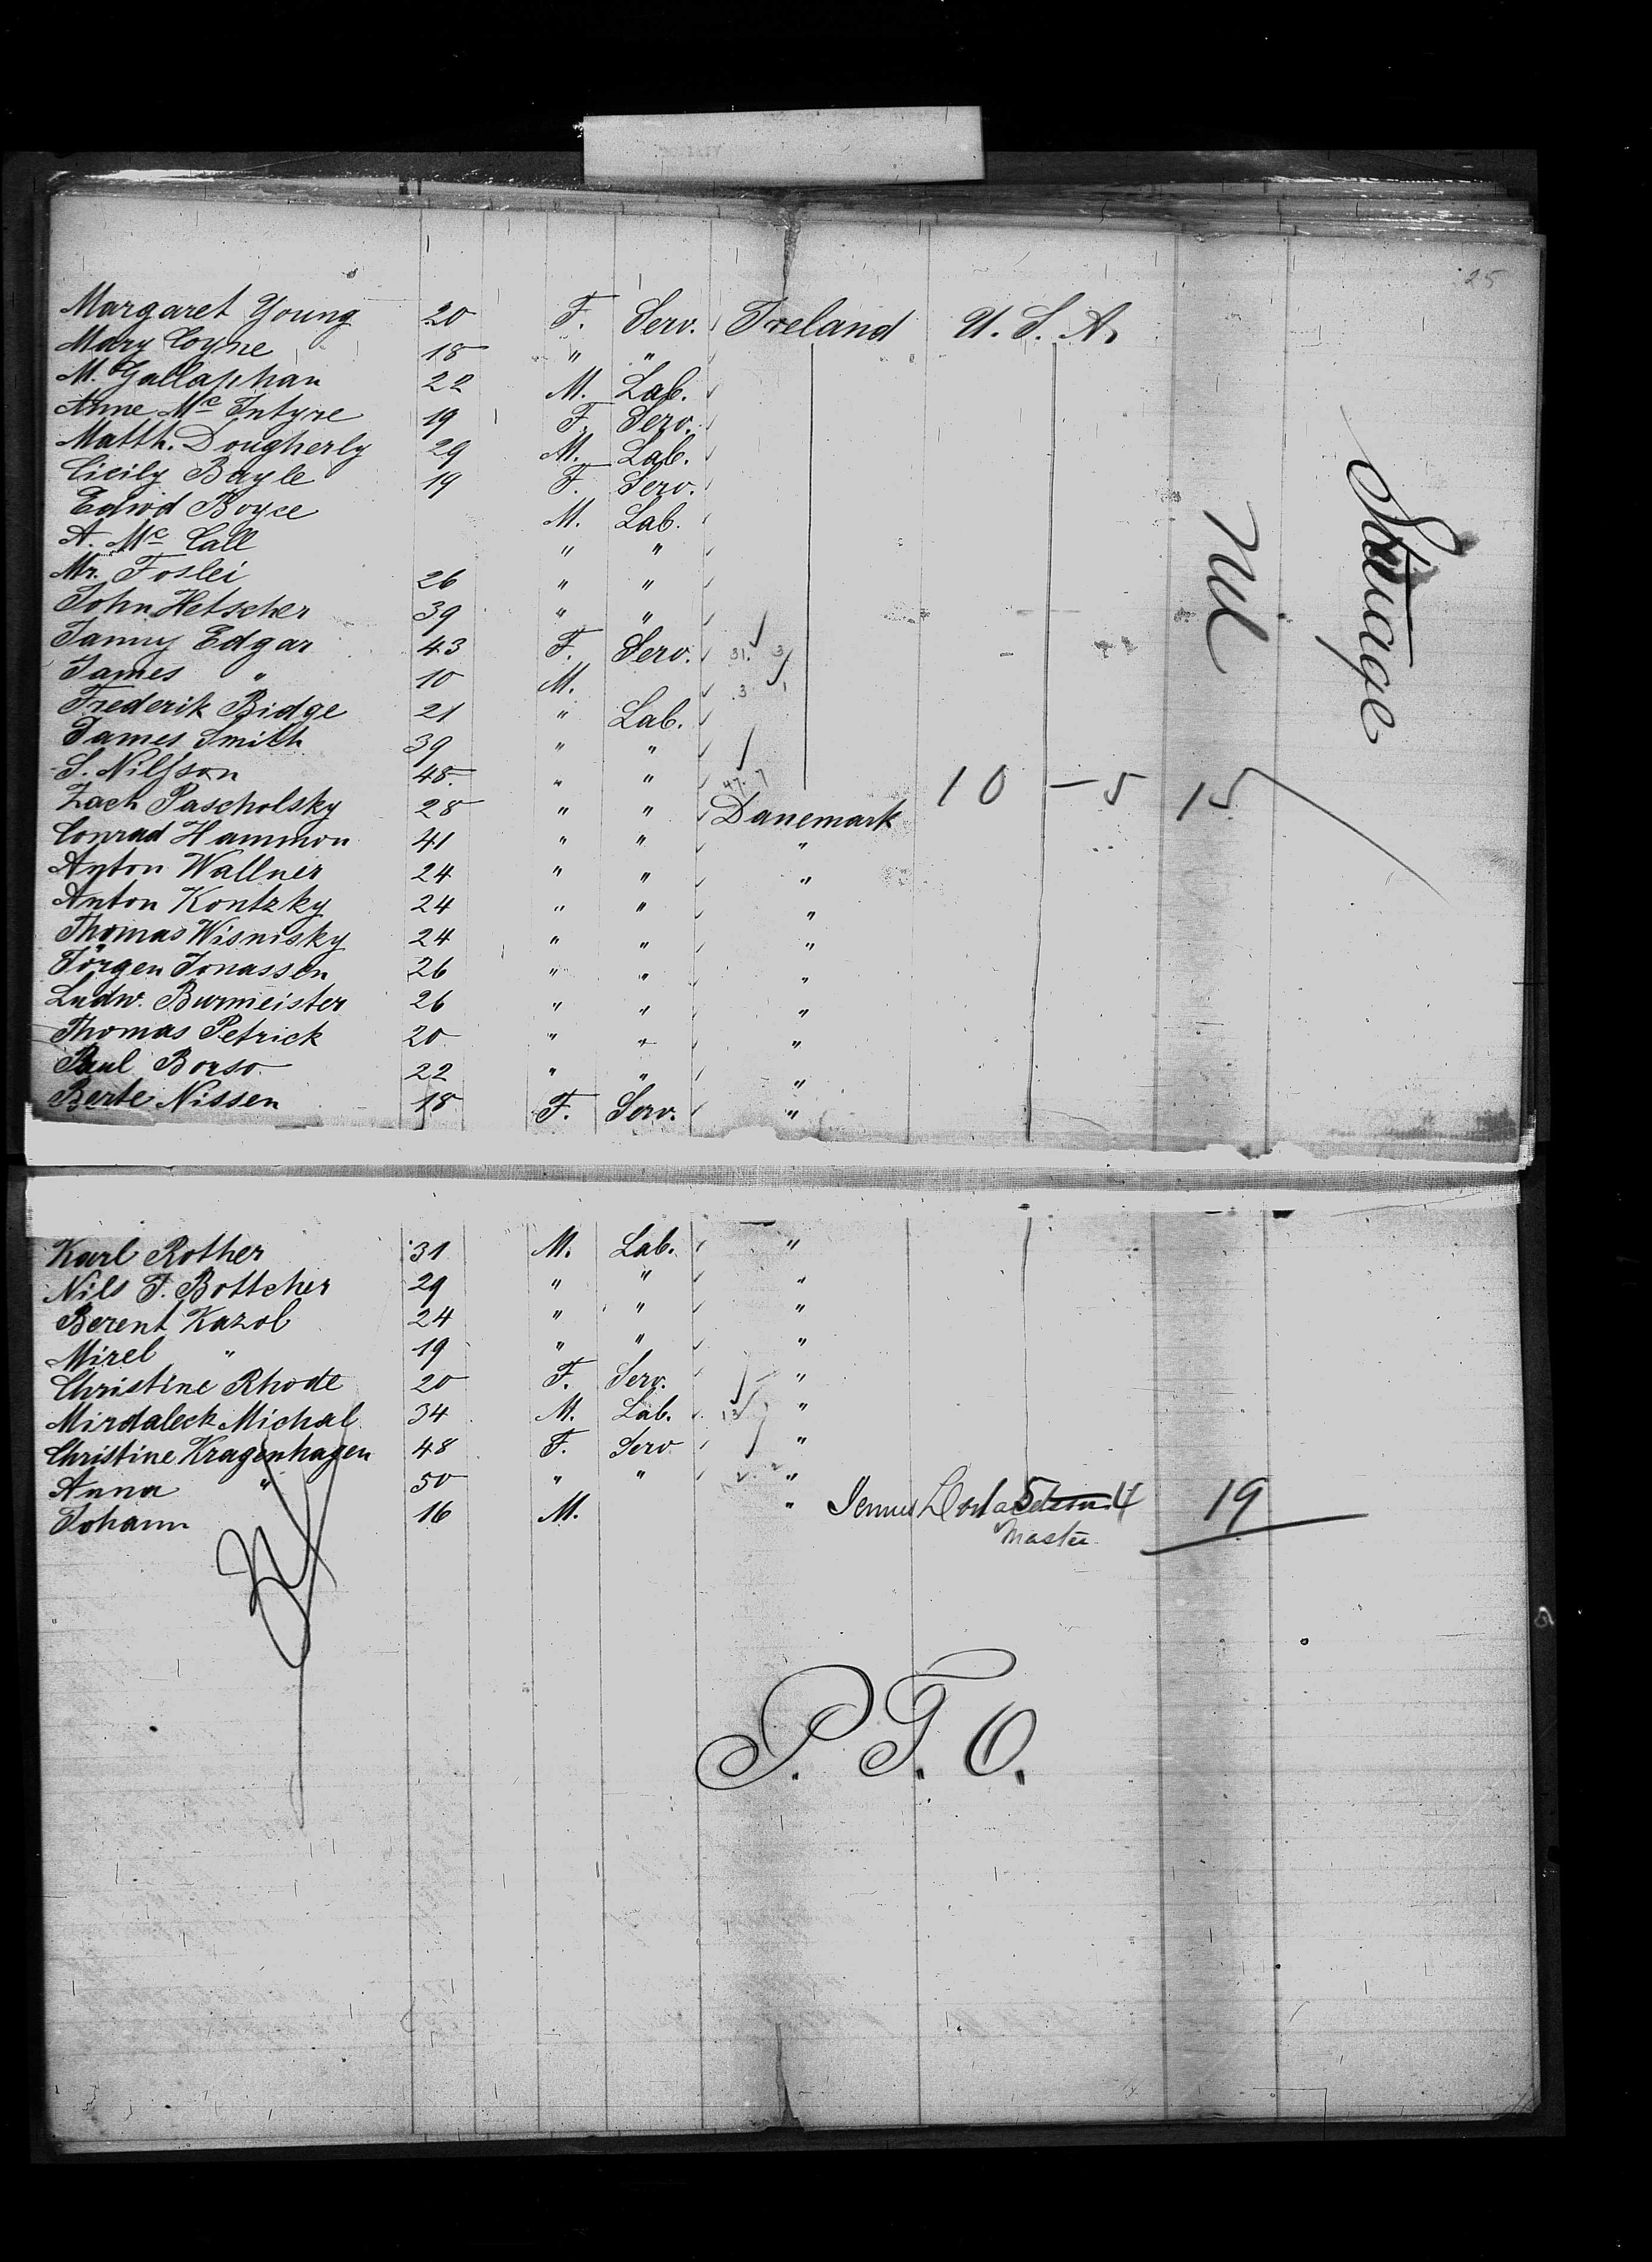 25
Margaret Young 20 F. Serv. Ireland U. S. A.
Mary Coyne 18 " "
M. Gallaphan 22 M. Lab.
Anne Mc Intyre 19 F. Serv.
Matth. Dougherly 29 M. Lab.
Cicily Bayle 19 F. Serv.
Edwd Boyce M. Lab.
A. Mc Call " "
Mr. Foslei 26 " "
John Hetscher 39 " "
Fanny Edgar 43 F. Serv. 31. 3
James " 10 M. 3 1
Frederik Bidge 21 " Lab.
James Smith 39 " "
S. Nilsson 48 " " 47. 7
Zach Pascholsky 28 " " Danemark 10 - 5 15
Conrad Hammon 41 " " "
Anton Wallner 24 " " "
Anton Kontzky 24 " " "
Thomas Wisnisky 24 " " "
Jörgen Jonassen 26 " " "
Ludw. Burmeister 26 " " "
Thomas Petrick 20 " " "
Paul Borso 22 " " "
Berte Nissen 18 F. Serv. "
Nil
Steerage
Karl Rother 31 M. Lab. "
Nils J. Bottcher 29 " " "
Berent Kazol 24 " " "
Mirel " 19 " " "
Christine Rhode 20 F. Serv. "
Mirdaleck Michal 34 M. Lab. "
Christine Kragenhagen 48 F. Serv "
Anna " 50 " " "
Johann 16 M. " 5 4 19
Master
P. T. O.